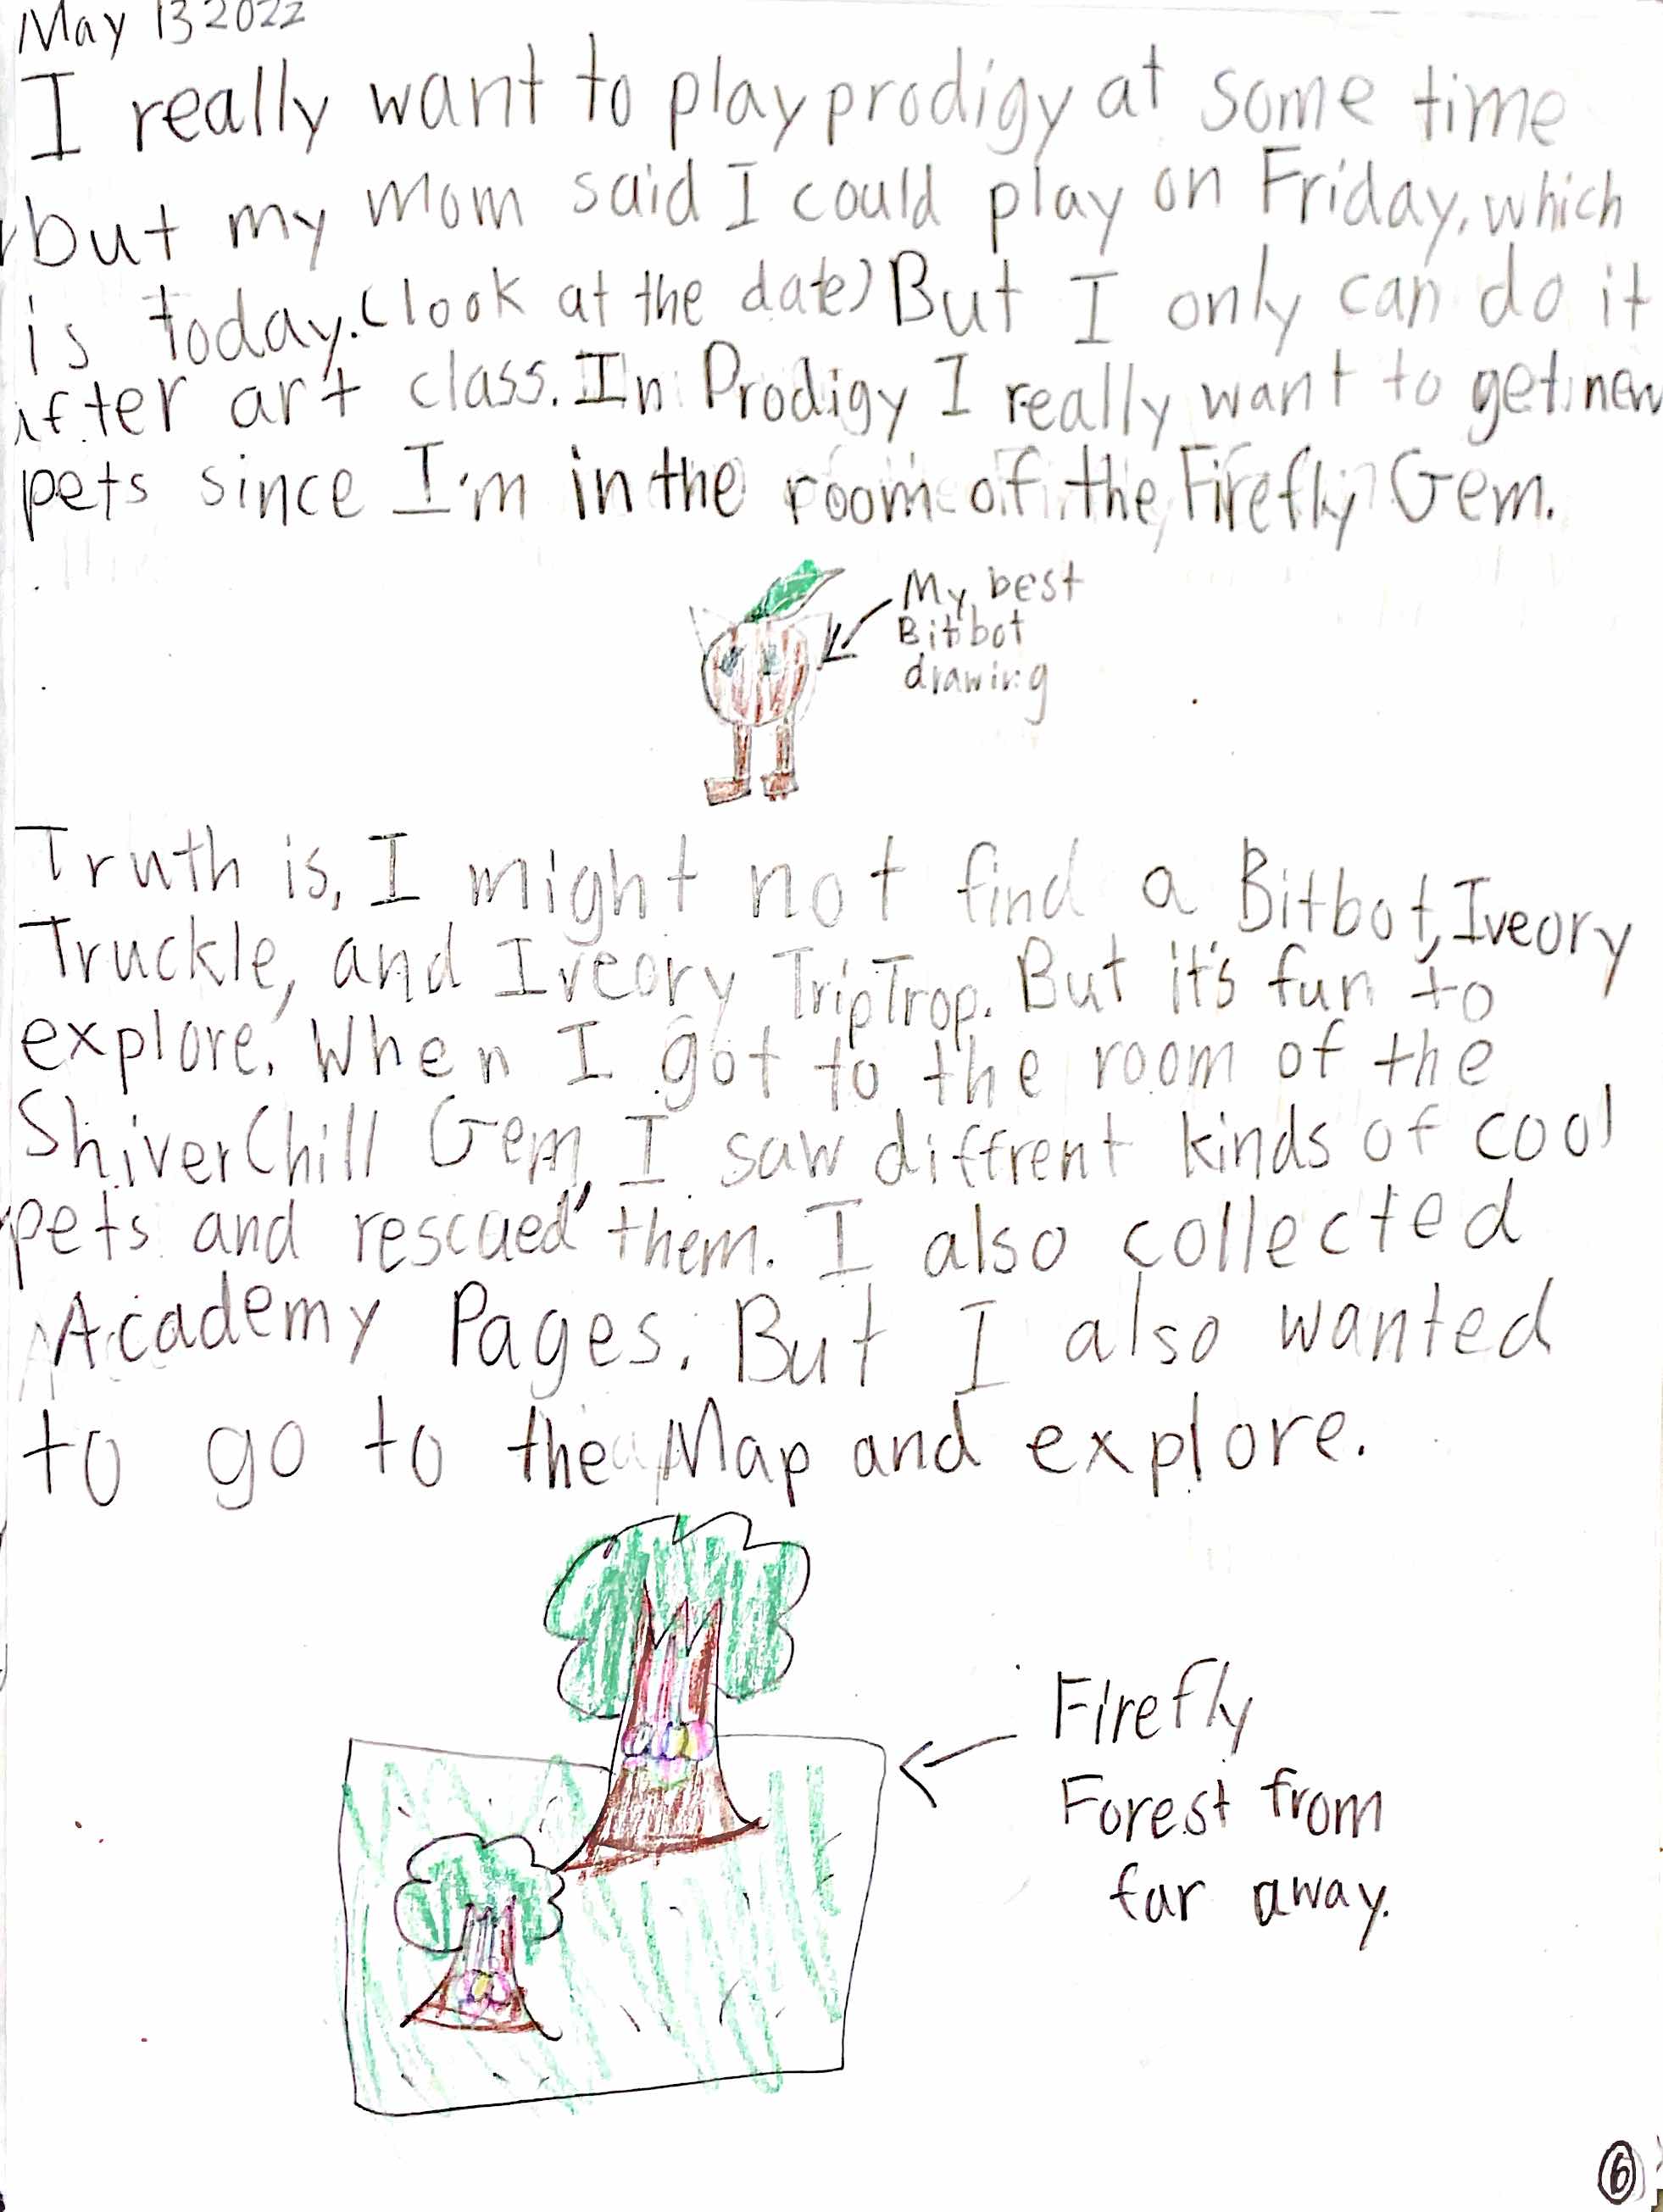 May 13 2022
I really want to play prodigy at some time
but my mom said I could play on Friday, which
is today. (look at the date) But I only can do it
after art class. In Prodigy I really want to get new
pets since I'm in the room of the Firefly Gem.
My best
Bitbot
drawing
Truth is, I might not find a Bitbot, Iveory
Truckle, and Iveory TripTrop. But it's fun to
explore. When I got to the room of the
ShiverChill Gem, I saw diffrent kinds of cool
pets and rescued them. I also collected
Academy Pages. But I also wanted
to go to the Map and explore.
Firefly
Forest from
far away.
6